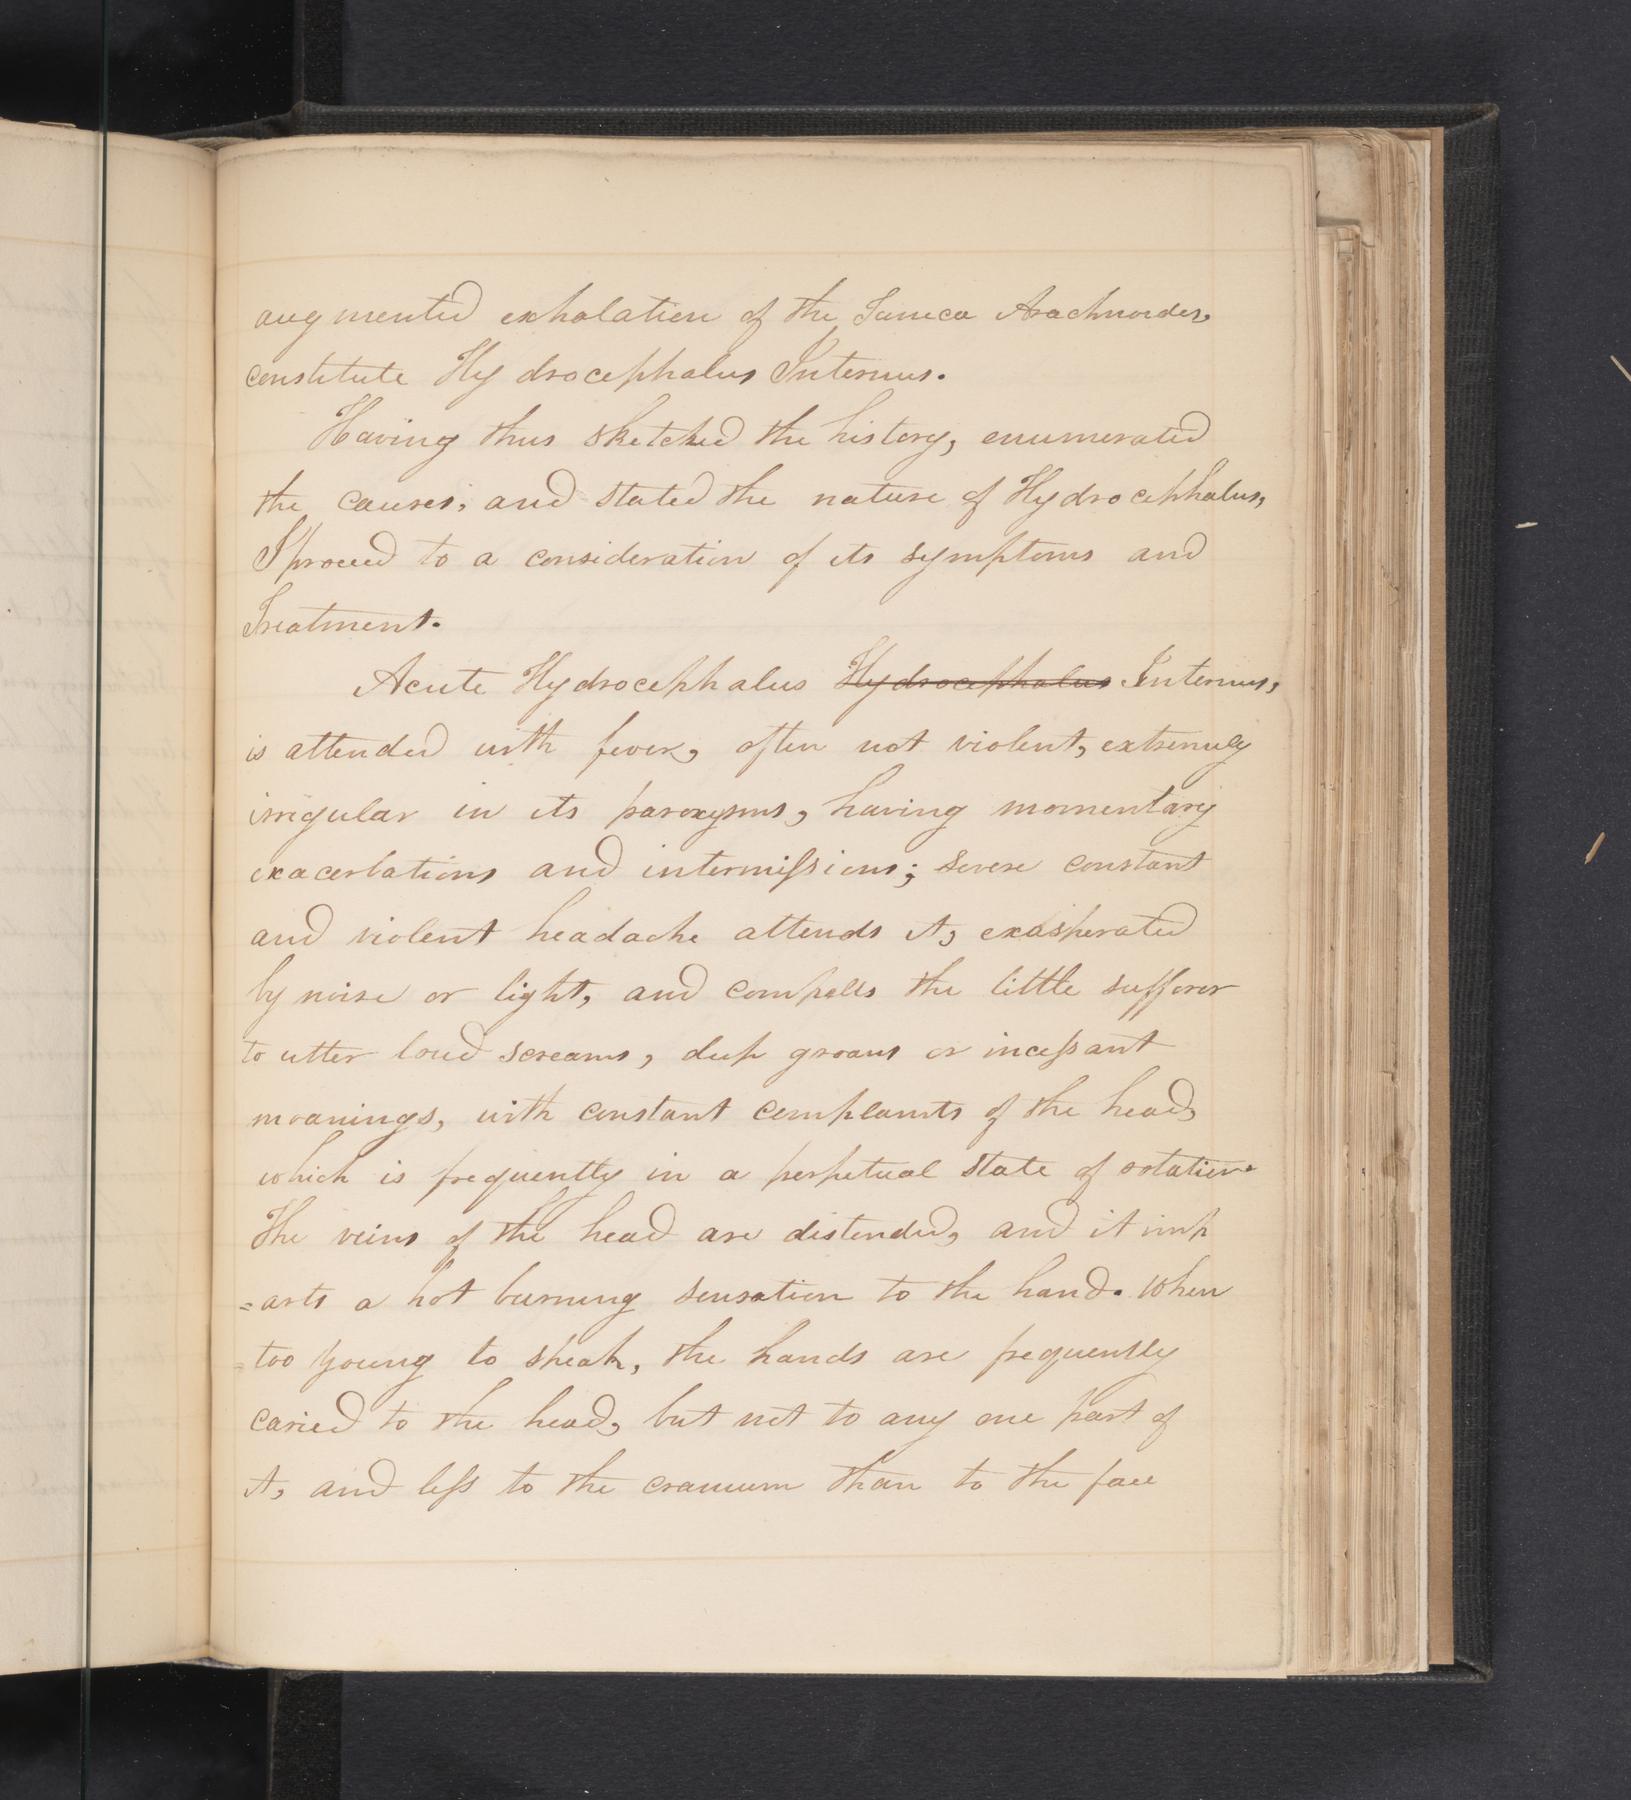 augmented exhalation of the Tunica Arachnoides,
constitute Hydrocephalus Internus.
Having thus sketched the history, enumerated
the causes, and stated the nature of Hydrocephalus,
I proceed to a consideration of its symptoms and
Treatment.
Acute Hydrocephalus Hydrocephalus Internus,
is attended with fever, often not violent, extremely
irregular in its paroxysms, having momentary
exacerbations and intermissions; severe constant
and violent headache attends it, exasperated
by noise or light, and compells the little sufferer
to utter loud screams, deep groans or incessant
moanings, with constant complaints of the head,
which is frequently in a perpetual state of rotation.
The veins of the head are distended, and it imp
=arts a hot burning sensation to the hand. When
too young to speak, the hands are frequently
caried to the head, but not to any one part of
it, and less to the cranium than to the face